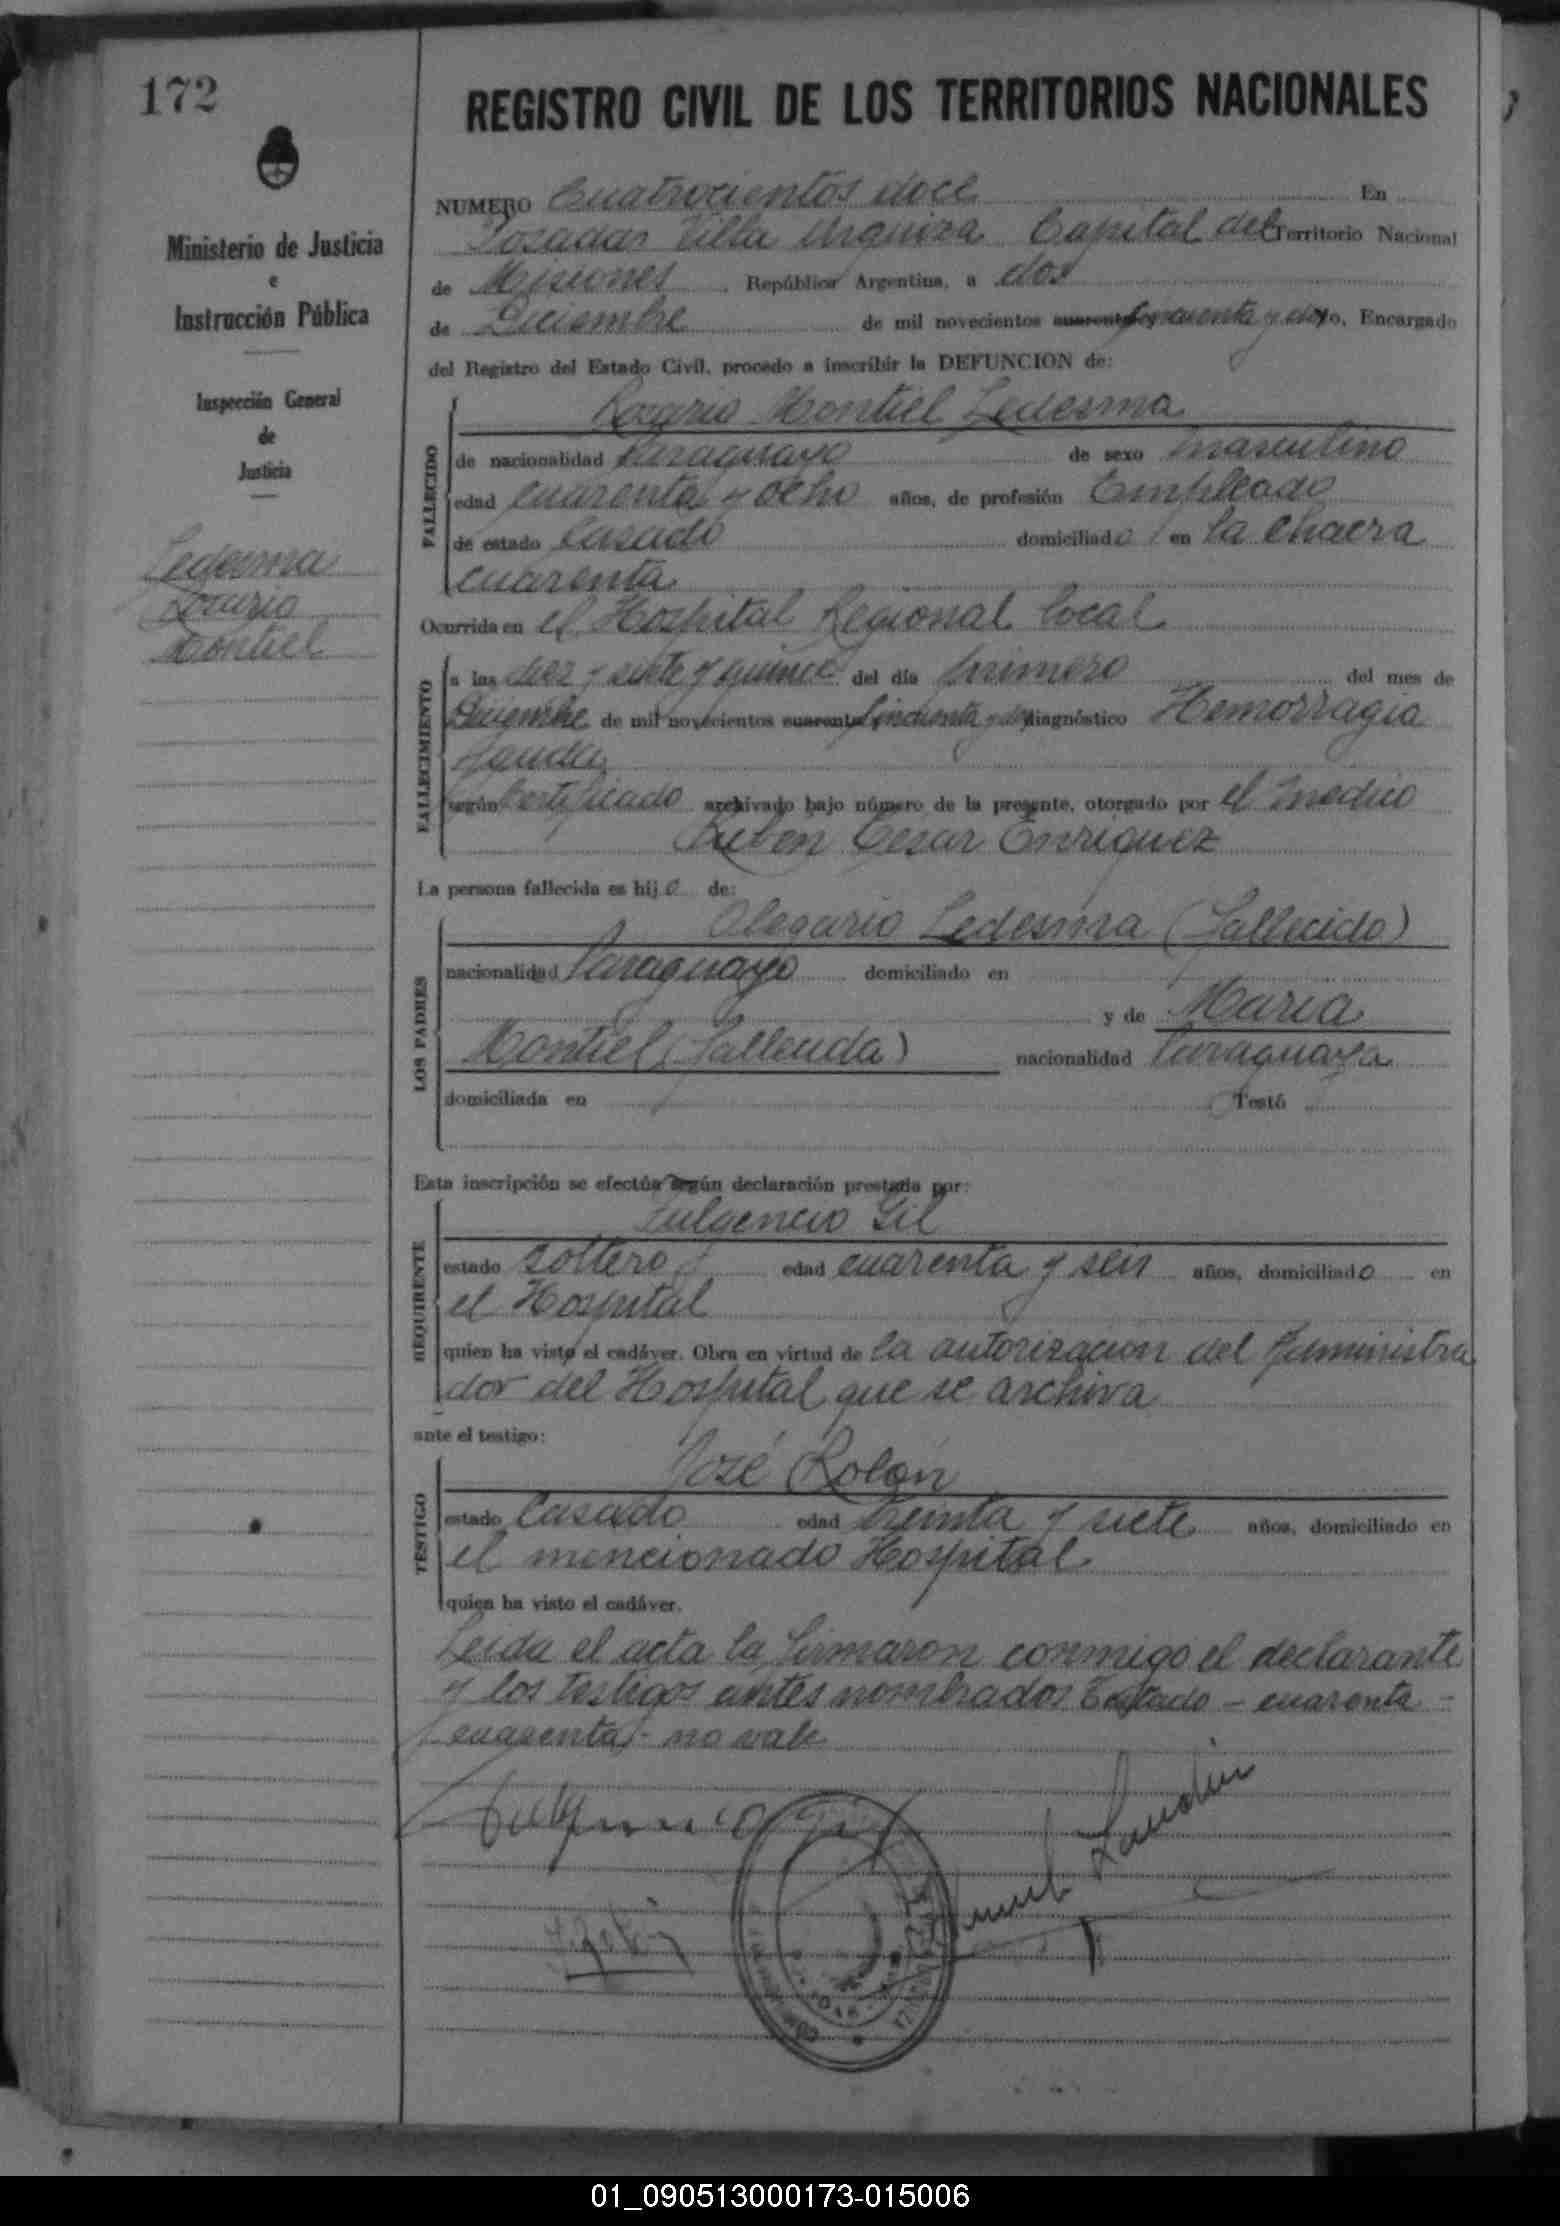 172
REGISTRO CIVIL DE LOS TERRITORIOS NACIONALES
Ministerio de Justicia
e
Instrucción Pública
Inspección General
de
Justicia
Ledesma
Rosario
Montiel
NUMERO Cuatrocientos doce En
Posadas Villa Urquiza Capital del Territorio Nacional
de Misiones República Argentina, a dos
de Diciembre de mil novecientos cuarenta y cincuenta y dos yo, Encargado
del Registro del Estado Civil, procedo a inscribir la DEFUNCION de:
FALLECIDO
Rosario Montiel Ledesma
de nacionalidad Paraguayo de sexo masculino
edad cuarenta y ocho años, de profesión Empleado
de estado Casado domiciliado en la chacra
cuarenta
Ocurrida en el Hospital Regional local
FALLECIMIENTO
a las diez y siete y quince del día primero del mes de
Diciembre de mil novecientos cuarenta cincuenta y dos diagnóstico Hemorragia
Aguda
según Certificado archivado bajo número de la presente, otorgado por el medico
Ruben Cesar Enriquez
La persona fallecida es hijo de:
LOS PADRES
Olegario Ledesma (fallecido)
nacionalidad Paraguayo domiciliado en
y de Maria
Montiel (fallecida) nacionalidad Paraguaya
domiciliada en Testó
Esta inscripción se efectúa según declaración prestada por:
REQUIRENTE
Fulgencio Gil
estado soltero edad cuarenta y seis años, domiciliado en
el Hospital
quien ha visto el cadáver. Obra en virtud de la autorizacion del Administra
dor del Hospital que se archiva
ante el testigo:
TESTIGO
José Rolon
estado Casado edad treinta y siete años, domiciliado en
el mencionado Hospital
quien ha visto el cadáver.
Leida el acta la firmaron conmigo el declarante
y los testigos antes nombrados Testado - cuarenta -
cuarenta - no vale
Fulgencio Gil
01_090513000173-015006